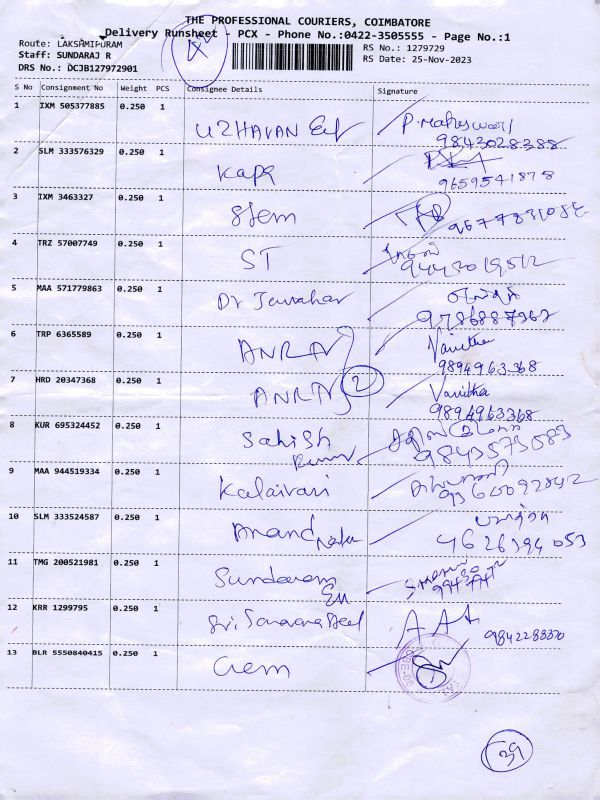 THE PROFESSIONAL COURIERS, COIMBATORE
Delivery Runsheet - PCX - Phone No.:0422-3505555 - Page No.:1
Route: LAKSHMIPURAM
RS No.: 1279729
Staff: SUNDARAJ R
RS Date: 25-Nov-2023
DRS No.: DCJB127972901
S No Consignment No Weight PCS Consignee Details Signature
1 IXM 505377885 0.250 1 UZHAVAN
9843028388
2 SLM 333576329 0.250 1
9659541878
3 IXM 3463327 0.250 1 Stem
4 TRZ 57007749 0.250 1 ST
5 MAA 571779863 0.250 1 Dr Jawahar
6 TRP 6365589 0.250 1 Vanitha
9894963368
7 HRD 20347368 0.250 1 2 Vanitha
9894963368
8 KUR 695324452 0.250 1 Sahish
9843573083
9 MAA 944519334 0.250 1 Kalaivani
9360092842
10 SLM 333524587 0.250 1 Anand
11 TMG 200521981 0.250 1 Sundaram
12 KRR 1299795 0.250 1 Sri. Saravana Steel
9842283370
13 BLR 5550840415 0.250 1 Gem
39